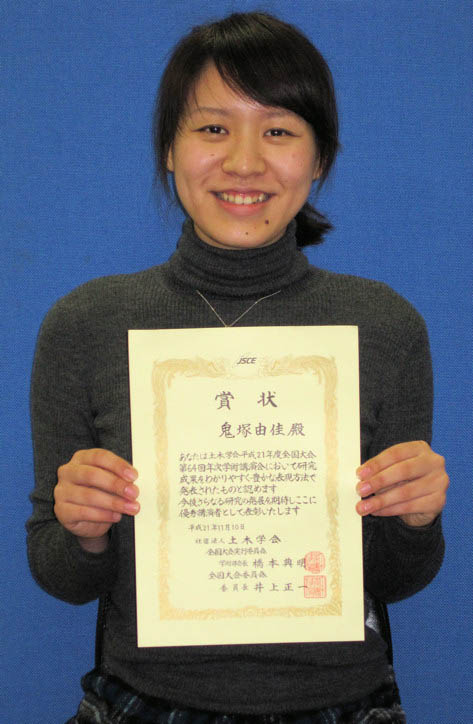 JSCE
賞状
鬼塚由佳殿
あなたは土木学会平成21年度全国大会
第64回年次学術講演会において研究
成果をわかりやすく豊かな表現方法で
発表されたものと認めます
今後さらなる研究の発展を期待しここに
優秀講演者として表彰いたします
平成21年11月10日
社団法人 土木学会
全国大会実行委員会
学術部会長 橋本典明
全国大会委員会
委員長 井上正一